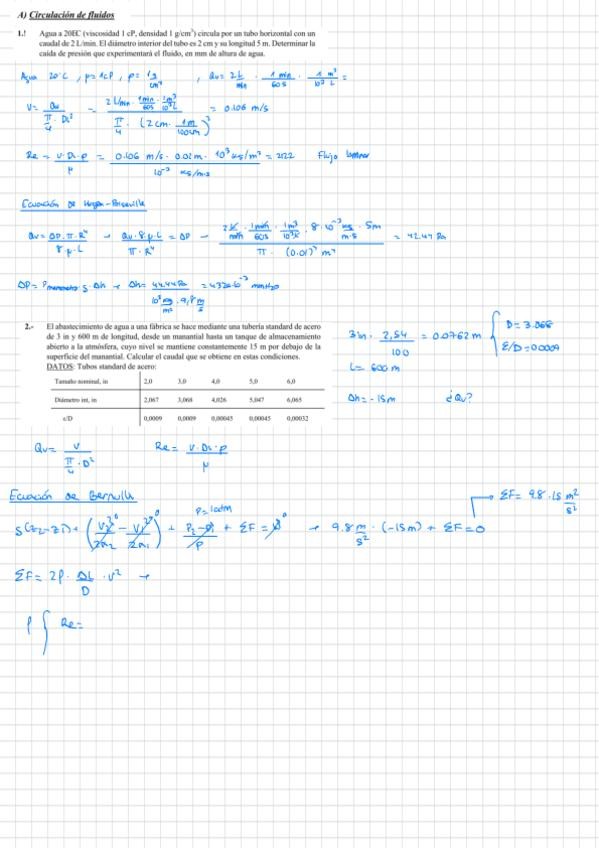 A) Circulación de fluidos
1.! Agua a 20EC (viscosidad 1 cP, densidad 1 g/cm³) circula por un tubo horizontal con un
caudal de 2 L/min. El diámetro interior del tubo es 2 cm y su longitud 5 m. Determinar la
caída de presión que experimentará el fluido, en mm de altura de agua.
Agua 20°C , μ=1cP , ρ= 1g/cm³ , Qv= 2L/min · 1min/60s · 1m³/10³L =
V= Qv/(π/4 · Di²) = (2L/min · 1min/60s · 1m³/10³L)/(π/4 · (2cm · 1m/100cm)²) = 0.106 m/s
Re = V·Di·ρ/μ = (0.106 m/s · 0.02m · 10³ kg/m³)/(10⁻³ kg/m·s) = 2122 Flujo laminar
Ecuación de Hagen-Poiseuille
Qv= ΔP·π·R⁴/8·μ·L → Qv·8·μ·L/π·R⁴ = ΔP → (2L/min · 1min/60s · 1m³/10³L · 8·10⁻³ kg/m·s · 5m)/(π · (0.01)⁴ m⁴) = 42.44 Pa
ΔP= ρ g Δh → Δh= 42.44Pa/(10³ kg/m³ · 9,8 m/s²) = 4.32·10⁻³ mmH2O
2.- El abastecimiento de agua a una fábrica se hace mediante una tubería standard de acero
de 3 in y 600 m de longitud, desde un manantial hasta un tanque de almacenamiento
abierto a la atmósfera, cuyo nivel se mantiene constantemente 15 m por debajo de la
superficie del manantial. Calcular el caudal que se obtiene en estas condiciones.
DATOS: Tubos standard de acero:
Tamaño nominal, in 2,0 3,0 4,0 5,0 6,0
Diámetro int, in 2,067 3,068 4,026 5,047 6,065
ε/D 0,0009 0,0009 0,00045 0,00045 0,00032
3in · 2,54/100 = 0.0762 m { D= 3.068
E/D=0.0009
L= 600 m
Δh= -15m ¿Qv?
Qv= V/(π/4 · D²) Re= V·Di·ρ/μ
Ecuación de Bernulli
g(z2-z1)+ (V2²/2α2 - V1²/2α1) + (P2-P1)/ρ + ΣF = 0 → 9.8 m/s² · (-15m) + ΣF=0
P=1atm
ΣF= 9.8·15 m²/s²
ΣF= 2f · ΔL/D · V² →
f { Re=